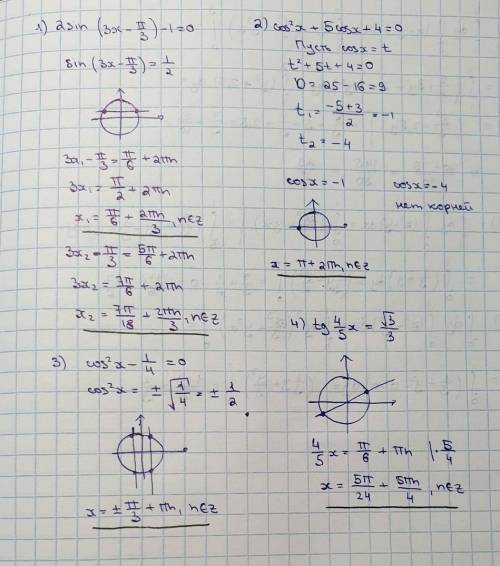 1) 2sin (3x - π/3) - 1 = 0
sin (3x - π/3) = 1/2
3x₁ - π/3 = π/6 + 2πn
3x₁ = π/2 + 2πn
x₁ = π/6 + 2πn/3, n∈Z
3x₂ - π/3 = 5π/6 + 2πn
3x₂ = 7π/6 + 2πn
x₂ = 7π/18 + 2πn/3, n∈Z
2) cos²x + 5cosx + 4 = 0
Пусть cosx = t
t² + 5t + 4 = 0
D = 25 - 16 = 9
t₁ = (-5+3)/2 = -1
t₂ = -4
cosx = -1 cosx = -4
нет корней
x = π + 2πn, n∈Z
3) cos²x - 1/4 = 0
cos²x = ± √(1/4) = ± 1/2
x = ± π/3 + πn, n∈Z
4) tg 4/5 x = √3/3
4/5 x = π/6 + πn |· 5/4
x = 5π/24 + 5πn/4, n∈Z